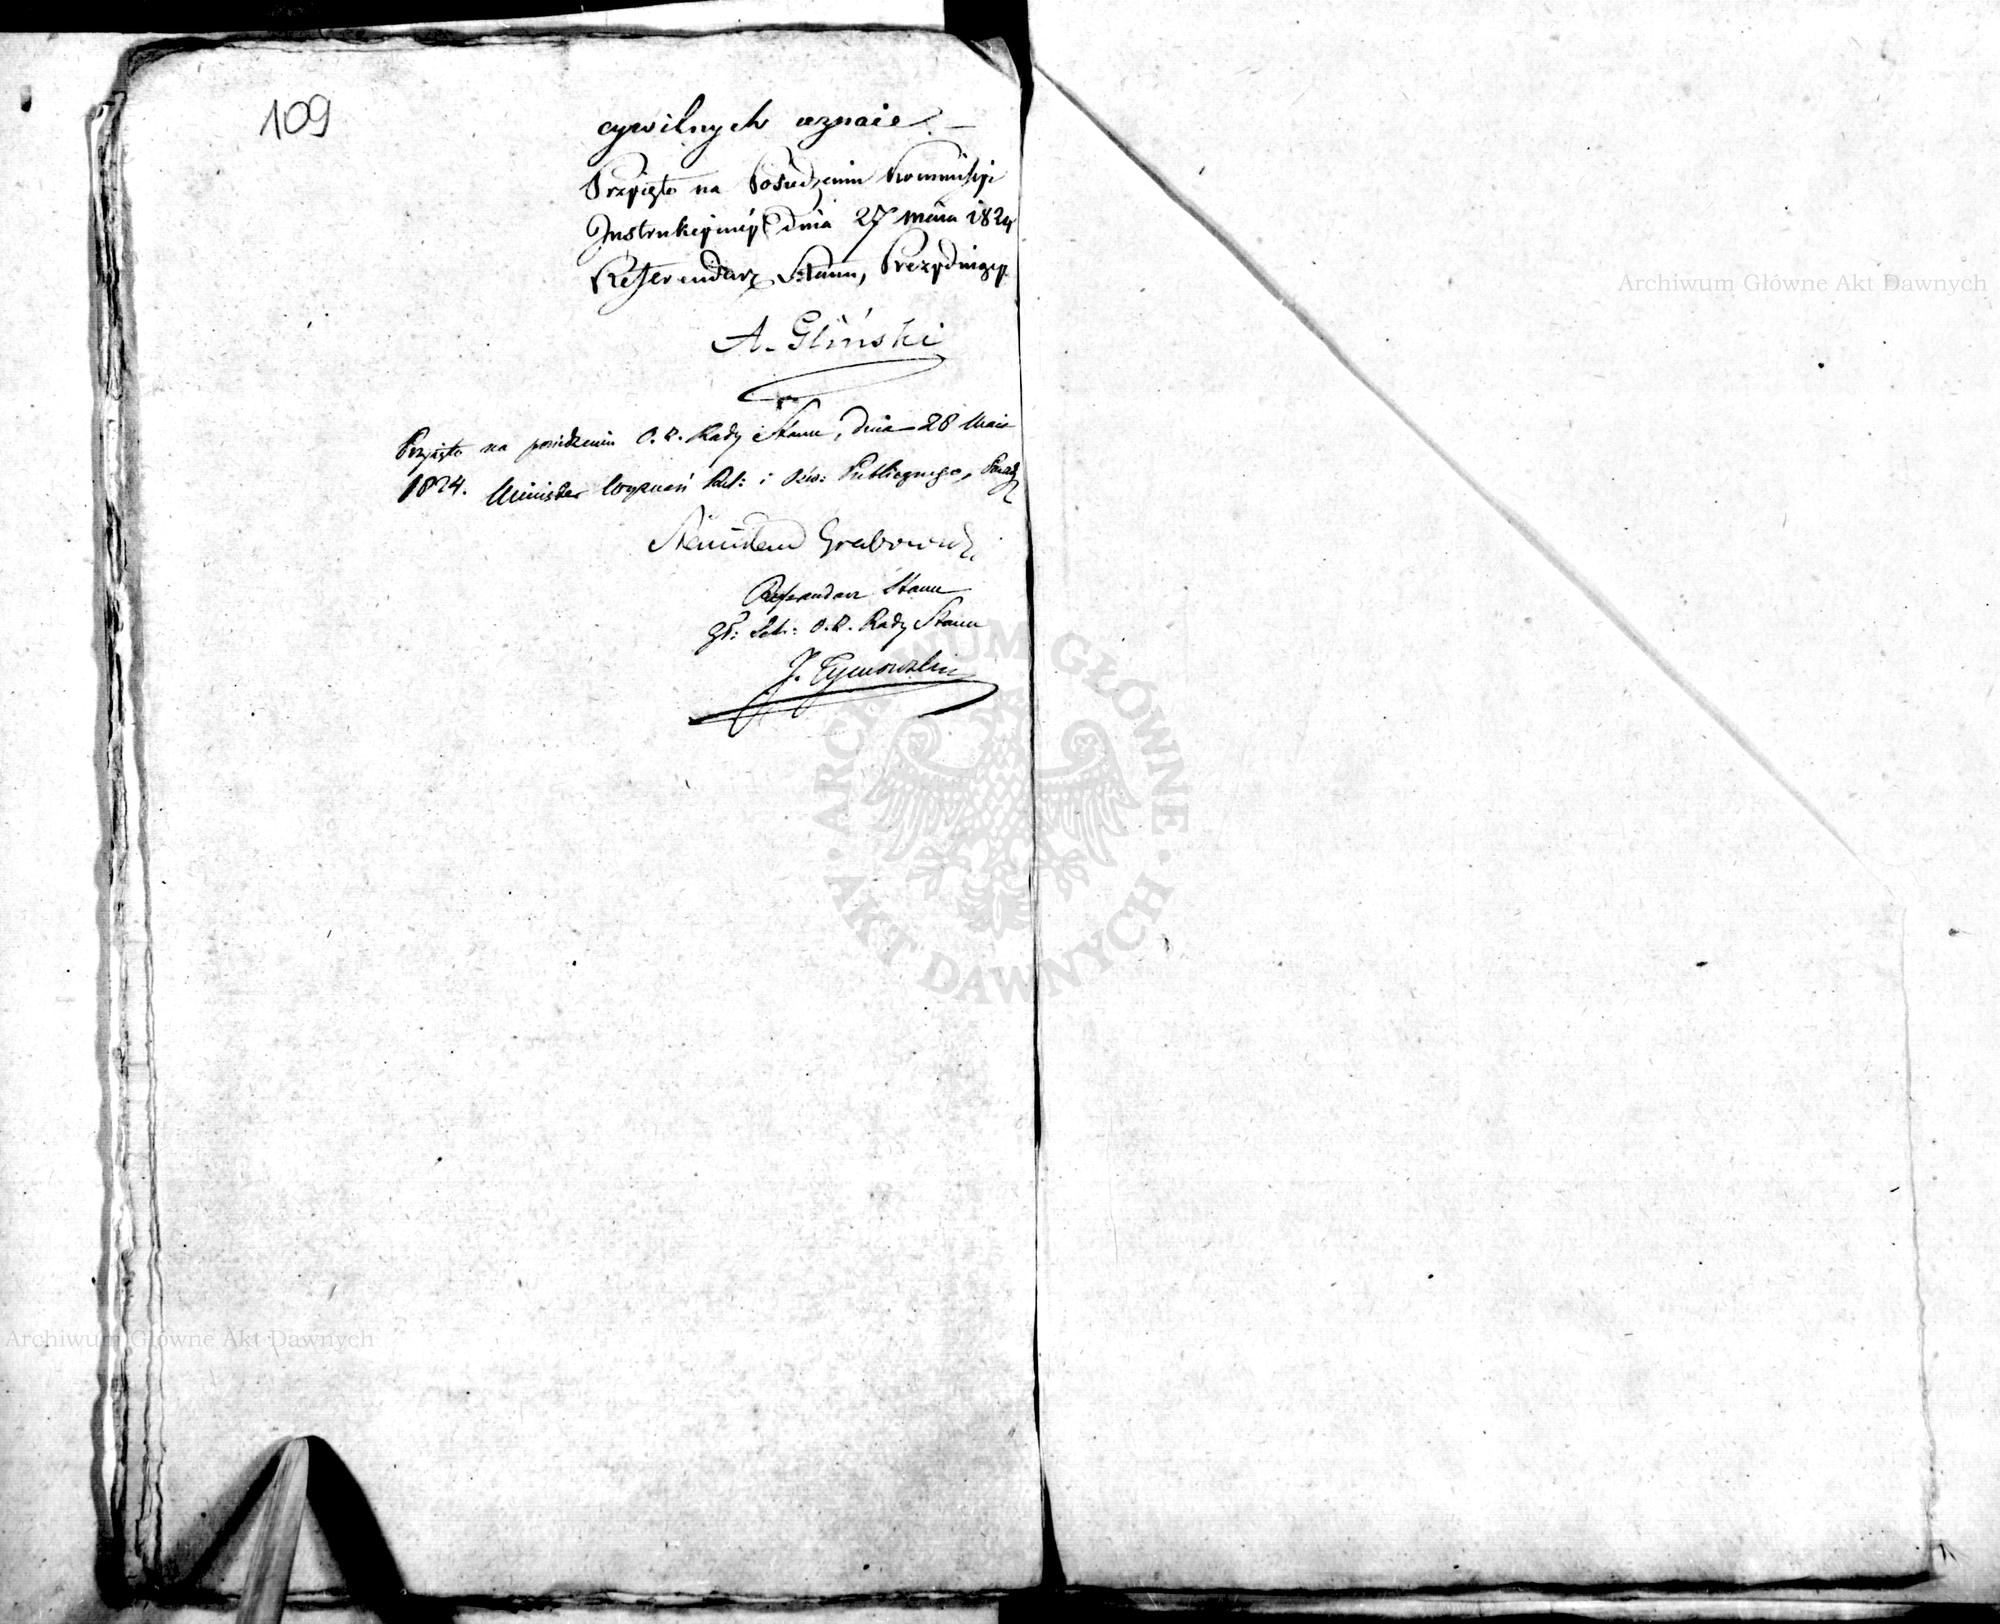 109
cywilnych uznaie. —
Przyięto na Posiedzeniu Kommissyi
Instrukcyinéy dnia 27 maia 1824
Referendarz Stanu, Prezyduiący
A. Gliński
Przyięto na posiedzeniu O. Z. Rady Stanu, dnia 28 Maia
1824. Minister Wyznań Rel: i Ośw: Publicznego,
Stanisław Grabowski
Referendarz Stanu
Rady Stanu
J. Tymowski
Archiwum Główne Akt Dawnych
ARCHIWUM GŁÓWNE · AKT DAWNYCH ·
Archiwum Główne Akt Dawnych